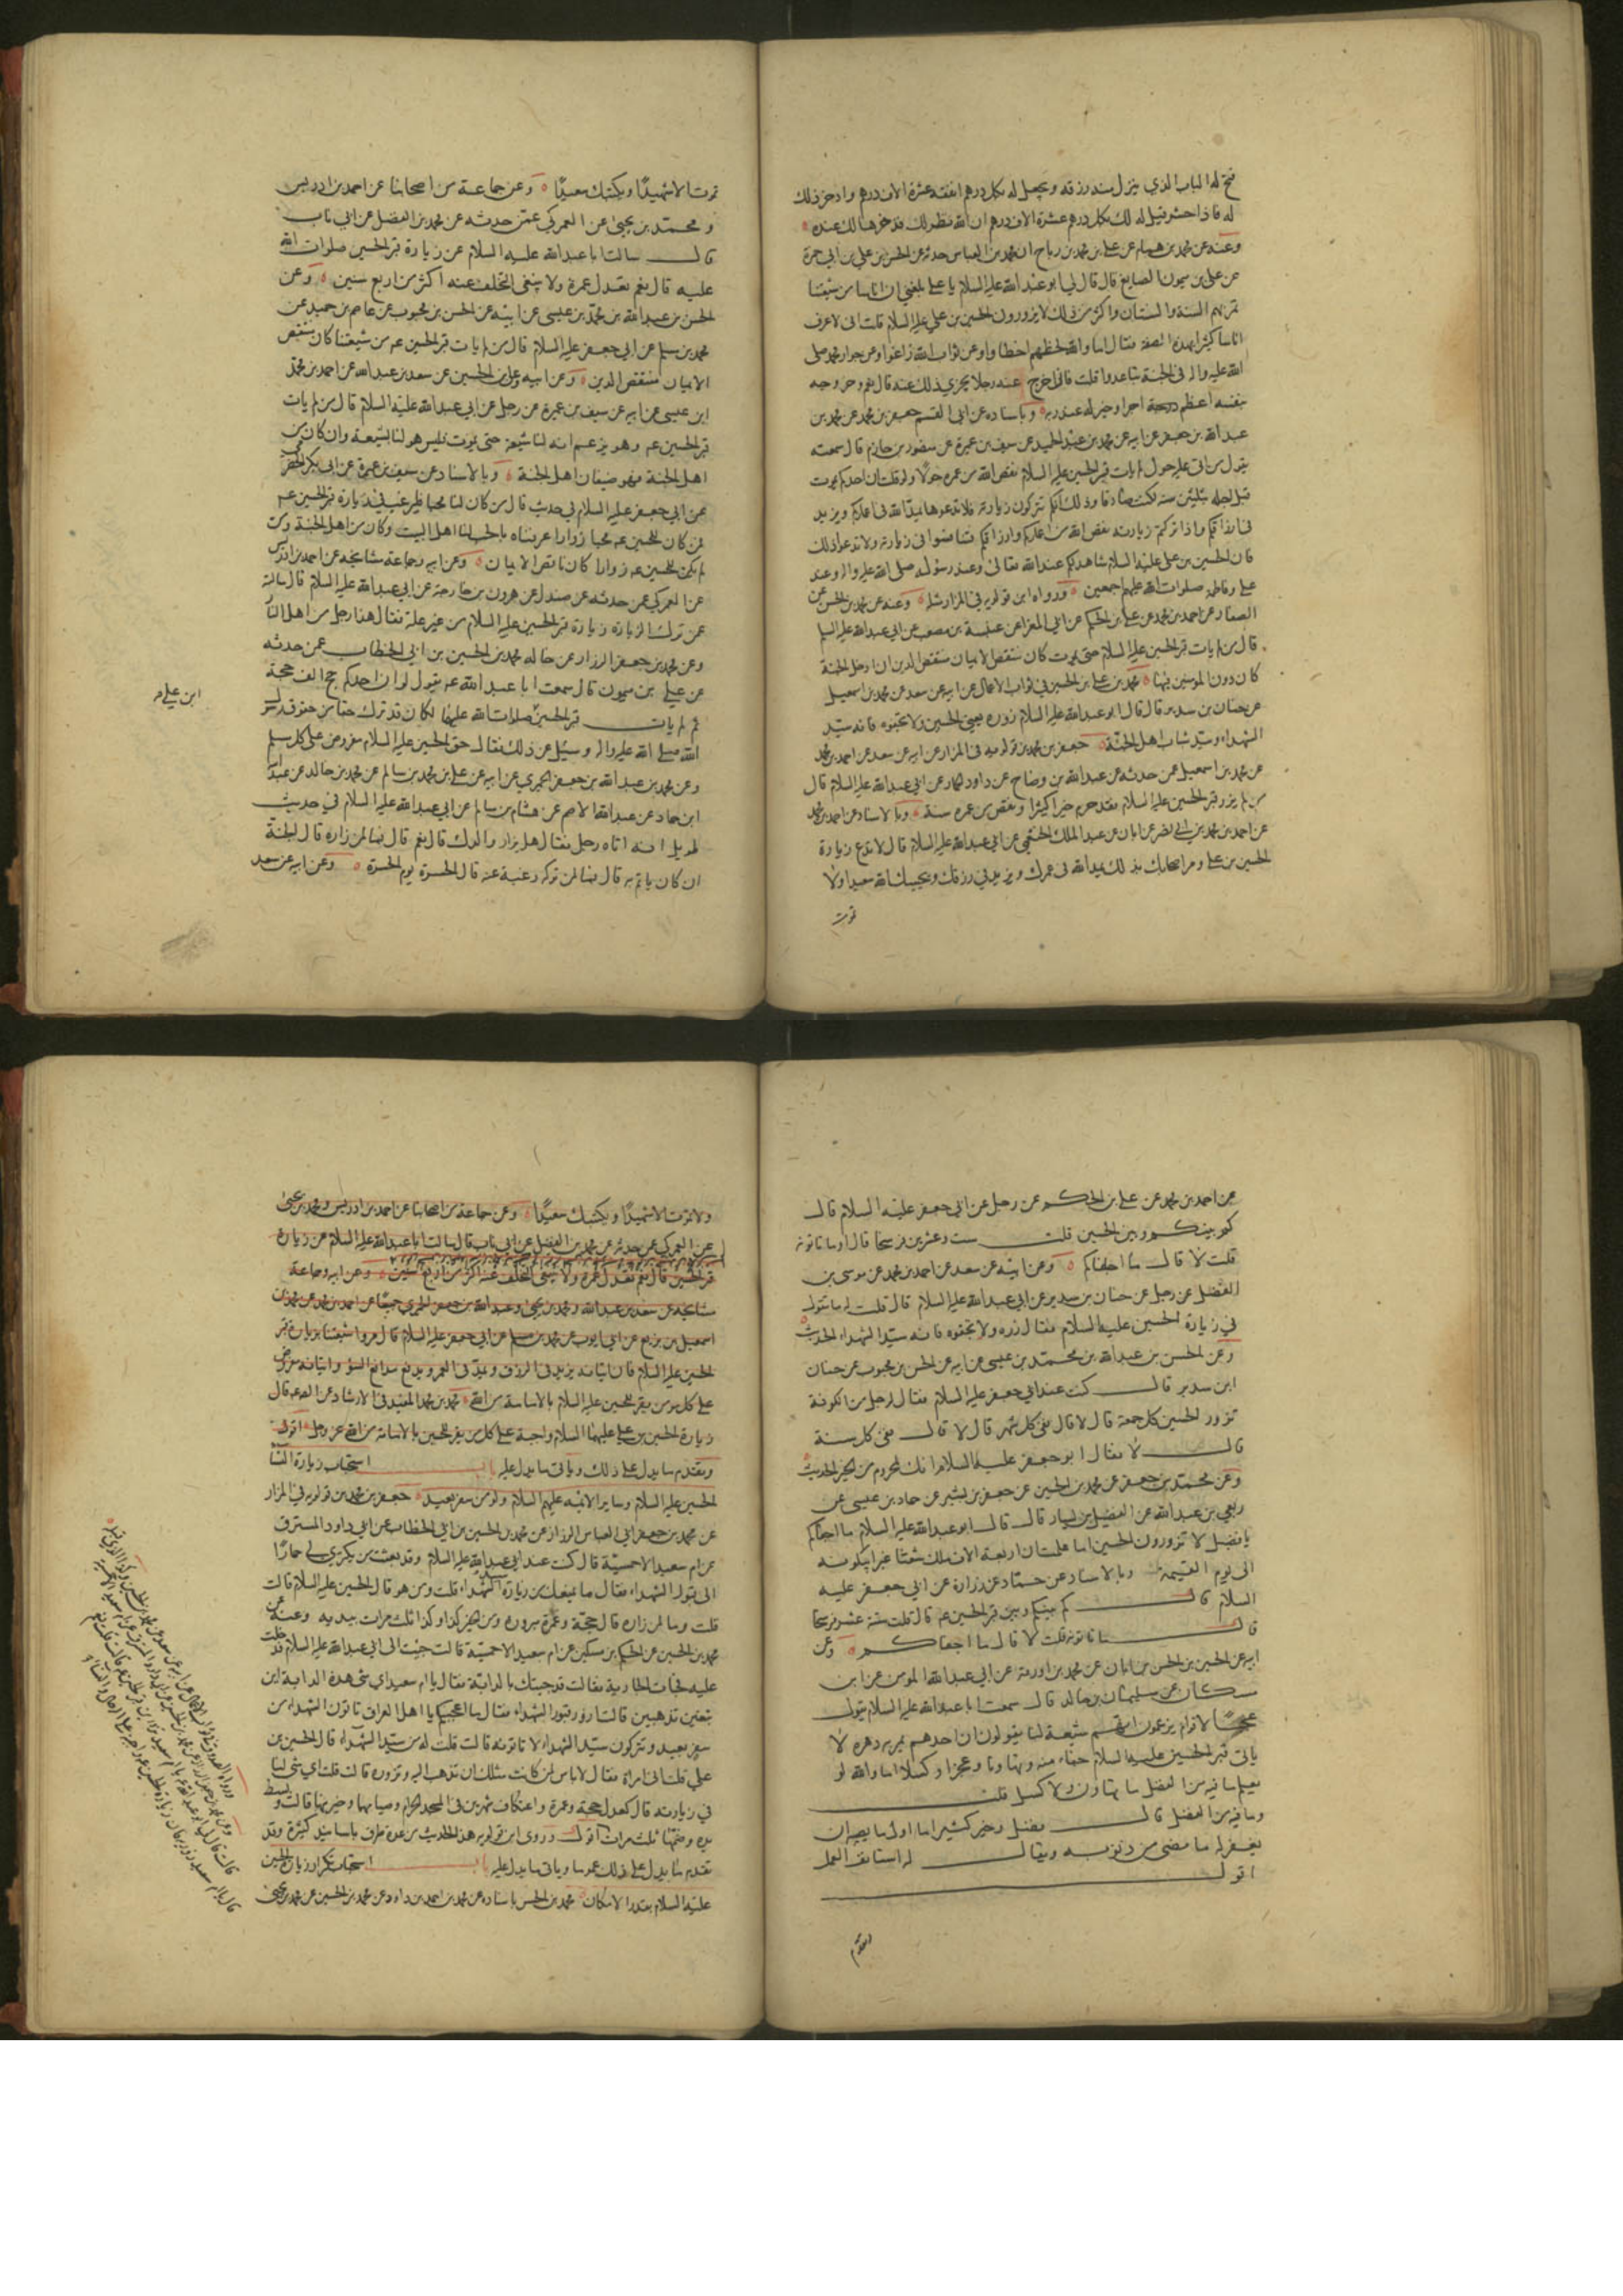 فتح له الباب الذي ينزل منه رزقه ويجعل له بكل درهم انفقه عشرة الاف درهم وادخر ذلك
له فاذا حشر قيل له لك بكل درهم عشرة الاف درهم ان الله نظر لك فذخرها لك عنده
وعنه عن محمد بن همام عن علي بن محمد بن رباح ان محمد بن العباس حدثه عن الحسن بن علي بن ابي حمزة
عن علي بن ميمون الصايغ قال قال لي ابو عبد الله عليه السلام يا علي بلغني ان اناسا من شيعتنا
تمر بهم السنة والسنتان واكثر من ذلك لا يزورون الحسين بن علي عليه السلام قلت اني لاعرف
اناسا كثيرا بهذه الصفة فقال اما والله لحظهم اخطاوا وعن ثواب الله زاغوا وعن جوار محمد صلى
الله عليه واله في الجنة تباعدوا قلت فان اخرج عنه رجلا يجزي ذلك عنه قال نعم وخروجه
بنفسه اعظم اجرا وخير له عند ربه وباسناده عن ابي القسم جعفر بن محمد عن محمد بن
عبد الله بن جعفر عن ابيه عن محمد بن عبد الحميد عن سيف بن عميرة عن منصور بن حازم قال سمعته
يقول من اتى عليه حول لم يات قبر الحسين عليه السلام نقص الله من عمره حولا ولو قلت ان احدكم يموت
قبل اجله بثلثين سنة لكنت صادقا وذلك انكم تتركون زيارته فلا تدعوها يمد الله في اعماركم ويزيد
في ارزاقكم واذا تركتم زيارته نقص الله من اعماركم وارزاقكم فتنافسوا في زيارته ولا تدعوا ذلك
فان الحسين بن علي عليه السلام شاهد لكم عند الله تعالى وعند رسوله صلى الله عليه واله وعند
علي وفاطمة صلوات الله عليهم اجمعين ورواه ابن قولويه في المزار مثله وعنه عن محمد بن الحسن عن
الصفار عن احمد بن محمد عن علي بن الحكم عن ابي المغرا عن عنبسة بن مصعب عن ابي عبد الله عليه السلام
قال من لم يات قبر الحسين عليه السلام حتى يموت كان منتقص الايمان منتقص الدين ان ادخل الجنة
كان دون المومنين فيها محمد بن علي بن الحسين في ثواب الاعمال عن ابيه عن سعد عن محمد بن اسمعيل
عن حنان بن سدير قال قال ابو عبد الله عليه السلام زوره يعني الحسين ولا تجفوه فانه سيد
الشهداء وسيد شباب اهل الجنة جعفر بن محمد بن قولويه في المزار عن ابيه عن سعد عن احمد بن محمد
عن محمد بن اسمعيل عمن حدثه عن عبد الله بن وضاح عن داود الحمار عن ابي عبد الله عليه السلام قال
من لم يزر قبر الحسين عليه السلام فقد حرم خيرا كثيرا ونقص من عمره سنة وبالاسناد عن احمد بن محمد
عن احمد بن محمد بن ابي نصر عن ابان عن عبد الملك الخثعمي عن ابي عبد الله عليه السلام قال لا تدع زيارة
الحسين بن علي ومر اصحابك بذلك يمد الله في عمرك ويزيد في رزقك ويحييك الله سعيدا ولا
تموت
تموت الا شهيدا ويكتبك سعيدا وعن جماعة من اصحابنا عن احمد بن ادريس
ومحمد بن يحيى عن العمركي عمن حدثه عن محمد بن الفضل عن ابي ناب
قال سالت ابا عبد الله عليه السلام عن زيارة قبر الحسين صلوات الله
عليه قال نعم تعدل عمرة ولا ينبغي التخلف عنه اكثر من اربع سنين وعن
الحسن بن عبد الله بن محمد بن عيسى عن ابيه عن الحسن بن محبوب عن عاصم بن حميد عن
محمد بن مسلم عن ابي جعفر عليه السلام قال من لم يات قبر الحسين عم من شيعتنا كان منتقص
الايمان منتقص الدين وعن ابيه وعلي بن الحسين عن سعد بن عبد الله عن احمد بن محمد
ابن عيسى عن ابيه عن سيف بن عميرة عن رجل عن ابي عبد الله عليه السلام قال من لم يات
قبر الحسين عم وهو يزعم انه لنا شيعة حتى يموت فليس هو لنا بشيعة وان كان من
اهل الجنة فهو ضيفان اهل الجنة وبالاسناد عن سيف بن عميرة عن ابي بكر الحضرمي
عن ابي جعفر عليه السلام في حديث قال من كان لنا محبا فليرغب في زيارة قبر الحسين عم
فمن كان للحسين عم محبا زوارا عرفناه بالحب لنا اهل البيت وكان من اهل الجنة ومن
لم يكن للحسين عم زوارا كان ناقص الايمان وعن ابيه وجماعة مشايخه عن احمد بن ادريس
عن العمركي عمن حدثه عن صندل عن هرون بن خارجة عن ابي عبد الله عليه السلام قال سالته
عمن ترك الزيارة زيارة قبر الحسين عليه السلام من غير علة فقال هذا رجل من اهل النار
وعن محمد بن جعفر الرزاز عن خاله محمد بن الحسين بن ابي الخطاب عمن حدثه
عن علي بن ميمون قال سمعت ابا عبد الله عم يقول لو ان احدكم حج الف حجة
ثم لم يات قبر الحسين صلوات الله عليهما لكان قد ترك حقا من حقوق رسول
الله صلى الله عليه واله وسئل عن ذلك فقال حق الحسين عليه السلام مفروض على كل مسلم
وعن محمد بن عبد الله بن جعفر الحميري عن ابيه عن علي بن محمد بن سالم عن محمد بن خالد عن عبد الله
ابن حماد عن عبد الله الاصم عن هشام بن سالم عن ابي عبد الله عليه السلام في حديث
طويل انه اتاه رجل فقال هل يزار والدك قال نعم قال فما لمن زاره قال الجنة
ان كان ياتم به قال فما لمن تركه رغبة عنه قال الحسرة يوم الحسرة وعن ابيه عن سعد
ابن علي
عن احمد بن محمد عن علي بن الحكم عن رجل عن ابي جعفر عليه السلام قال
كم بينكم وبين الحسين قلت ست وعشرين فرسخا قال او ما تاتونه
قلت لا قال ما اجفاكم وعن ابيه عن سعد عن احمد بن محمد عن موسى بن
الفضل عن رجل عن حنان بن سدير عن ابي عبد الله عليه السلام قال قلت له ما تقول
في زيارة الحسين عليه السلام فقال زره ولا تجفوه فانه سيد الشهداء الحديث
وعن الحسن بن عبد الله بن محمد بن عيسى عن ابيه عن الحسن بن محبوب عن حنان
ابن سدير قال كنت عند ابي جعفر عليه السلام فقال لرجل من اهل الكوفة
تزور الحسين كل جمعة قال لا قال ففي كل شهر قال لا قال ففي كل سنة
قال لا فقال ابو جعفر عليه السلام انك لمحروم من الخير الحديث
وعن محمد بن جعفر عن محمد بن الحسين عن جعفر بن بشير عن حماد بن عيسى عن
ربعي بن عبد الله عن الفضيل بن يسار قال قال ابو عبد الله عليه السلام ما اجفاكم
يا فضيل لا تزورون الحسين اما علمت ان اربعة الاف ملك شعثا غبرا يبكونه
الى يوم القيمة وبالاسناد عن حماد عن زرارة عن ابي جعفر عليه
السلام قال كم بينكم وبين قبر الحسين عم قال قلت ستة عشر فرسخا
قال ما تاتونه قلت لا قال ما اجفاكم وعن
ابيه عن الحسين بن الحسن بن ابان عن محمد بن اورمة عن ابي عبد الله المومن عن ابن
مسكان عن سليمان بن خالد قال سمعت ابا عبد الله عليه السلام يقول
عجبا لاقوام يزعمون انهم شيعة لنا يقولون ان احدهم يمر به دهره لا
ياتي قبر الحسين عليه السلام جفاء منه وتهاونا وعجزا وكسلا اما والله لو
يعلم ما فيه من الفضل ما تهاون ولا كسل قلت
وما فيه من الفضل قال فضل وخير كثير اما اول ما يصيبه ان
يغفر له ما مضى من ذنوبه ويقال له استانف العمل
اقول
وتقدم
ولا تموت الا شهيدا ويكتبك سعيدا وعن جماعة من اصحابنا عن احمد بن ادريس ومحمد بن يحيى
عن العمركي عن حدثه عن محمد بن الفضل عن ابي ناب قال سالت ابا عبد الله عليه السلام عن زيارة
قبر الحسين قال نعم تعدل عمرة ولا ينبغي التخلف عنه اكثر من اربع سنين وعن ابيه وجماعة
مشايخه عن سعد بن عبد الله ومحمد بن يحيى وعبد الله بن جعفر الحميري جميعا عن احمد بن محمد عن محمد بن
اسمعيل بن بزيع عن ابي ايوب عن محمد بن مسلم عن ابي جعفر عليه السلام قال مروا شيعتنا بزيارة قبر
الحسين عليه السلام فان اتيانه يزيد في الرزق ويمد في العمر ويدفع مدافع السوء واتيانه مفروض
على كل مومن يقر للحسين عليه السلام بالامامة من الله محمد بن محمد المفيد في الارشاد عن الصم قال
زيارة الحسين بن علي عليهما السلام واجبة على كل من يقر للحسين بالامامة من الله عز وجل اقول
وتقدم ما يدل على ذلك وياتي ما يدل عليه باب استحباب زيارة النساء
الحسين عليه السلام وساير الائمة عليهم السلام ولو من سفر بعيد جعفر بن محمد بن قولويه في المزار
عن محمد بن جعفر ابي العباس الرزاز عن محمد بن الحسين بن ابي الخطاب عن ابي داود المسترق
عن ام سعيد الاحمسية قال كنت عند ابي عبد الله عليه السلام وقد بعثت من يكتري لي حمارا
الى قبور الشهداء فقال ما يمنعك من زيارة سيد الشهداء قلت ومن هو قال الحسين عليه السلام قالت
قلت وما لمن زاره قال حجة وعمرة مبرورة ومن الخير كذا وكذا ثلث مرات بيده وعنه عن
محمد بن الحسين عن الحكم بن مسكين عن ام سعيد الاحمسية قالت جئت الى ابي عبد الله عليه السلام فدخلت
عليه فجاءت الجارية فقالت قد جئتك بالدابة فقال يا ام سعيد اي شيء هذه الدابة اين
تبغين تذهبين قالت ازور قبور الشهداء فقال ما اعجبكم يا اهل العراق تاتون الشهداء من
سفر بعيد وتتركون سيد الشهداء لا تاتونه قالت قلت له من سيد الشهداء قال الحسين بن
علي قلت اني امراة فقال لا باس لمن كانت مثلك ان تذهب اليه وتزوره قالت قلت اي شيء لنا
في زيارته قال كعدل حجة وعمرة واعتكاف شهرين في المسجد الحرام وصيامها وخير منها قالت وبسط
يده وضمها ثلث مرات اقول وروى ابن قولويه هذا الحديث من عدة طرق باسانيد كثيرة وقد
تقدم ما يدل على ذلك عموما وياتي ما يدل عليه باب استحباب تكرار زيارة الحسين
عليه السلام بقدر الامكان محمد بن الحسن باسناده عن محمد بن احمد بن داود عن محمد بن الحسين عن محمد بن يحيى